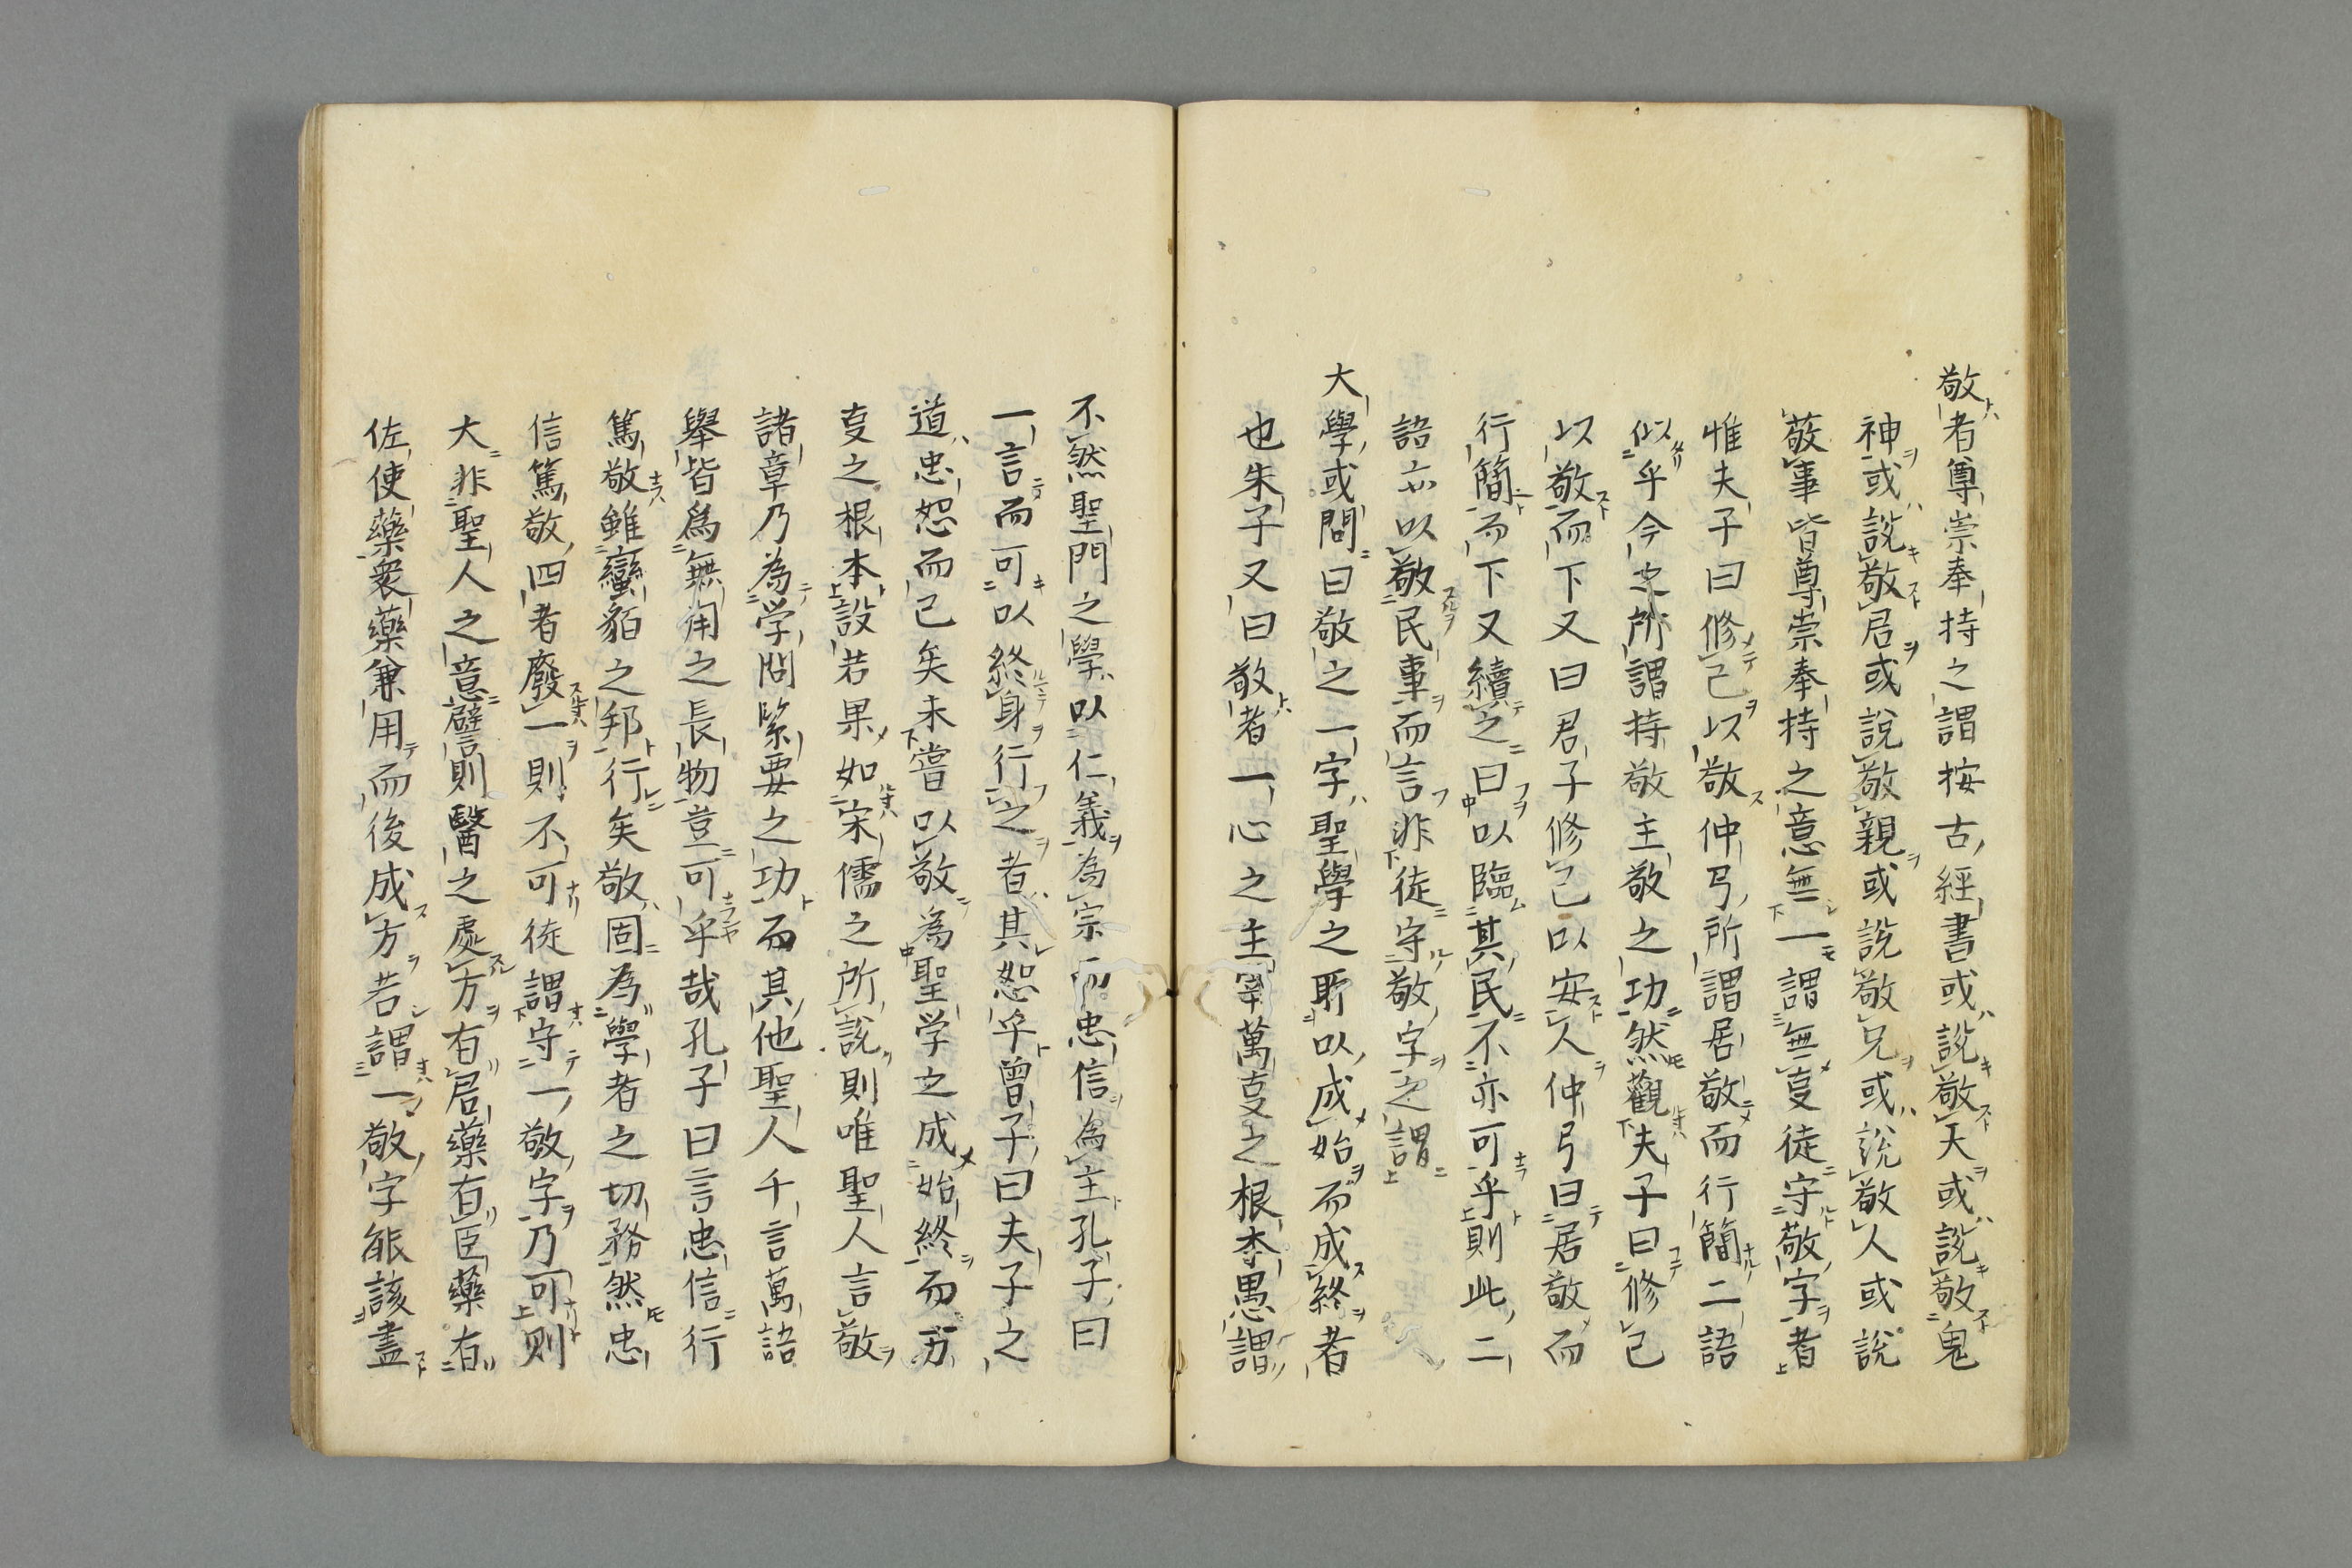 敬者尊崇奉持之謂按古經書或說敬天或說敬鬼
神或說敬君或說敬親或說敬兄或說敬人或說
敬事皆尊崇奉持之意無一謂無事徒守敬字者
惟夫子曰修己以敬仲弓所謂居敬而行簡二語
似乎今之所謂持敬主敬之功然觀夫子曰修己
以敬而下又曰君子修己以安人仲弓曰居敬而
行簡而下又續之曰以臨其民不亦可乎則此二
語亦以敬民事而言非徒守敬字之謂
大學或問曰敬之一字聖學之所以成始而成終者
也朱子又曰敬者一心之主宰萬事之根本愚謂
不然聖門之學以仁義為宗而忠信為主孔子曰
一言而可以終身行之者其恕乎曾子曰夫子之
道忠恕而已矣未嘗以敬為聖学之成始終而万
事之根本設若果如宋儒之所說則唯聖人言敬
諸章乃為学問緊要之功而其他聖人千言萬語
舉皆爲無用之長物豈可乎哉孔子曰言忠信行
篤敬雖蠻貊之邦行矣敬固為學者之切務然忠
信篤敬四者廢一則不可徒謂守一敬字乃可則
大非聖人之意譬則醫之處方有君藥有臣藥有
佐使藥衆藥兼用而後成方若謂一敬字能該盡